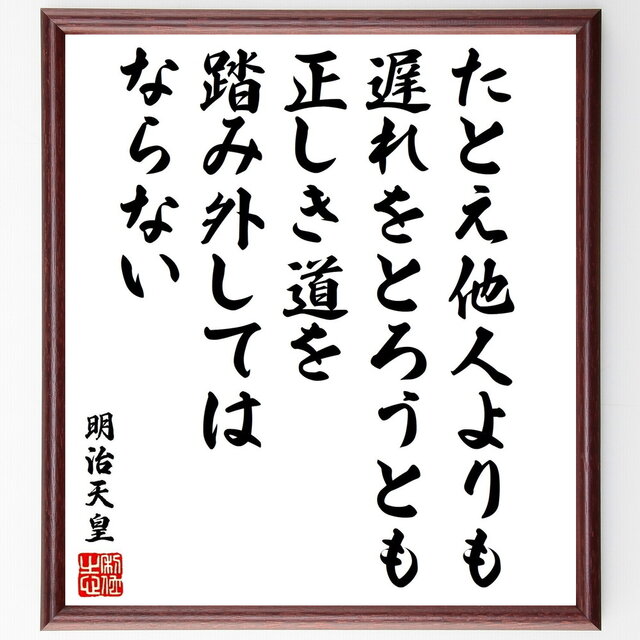 たとえ他人よりも
遅れをとろうとも
正しき道を
踏み外しては
ならない
明治天皇